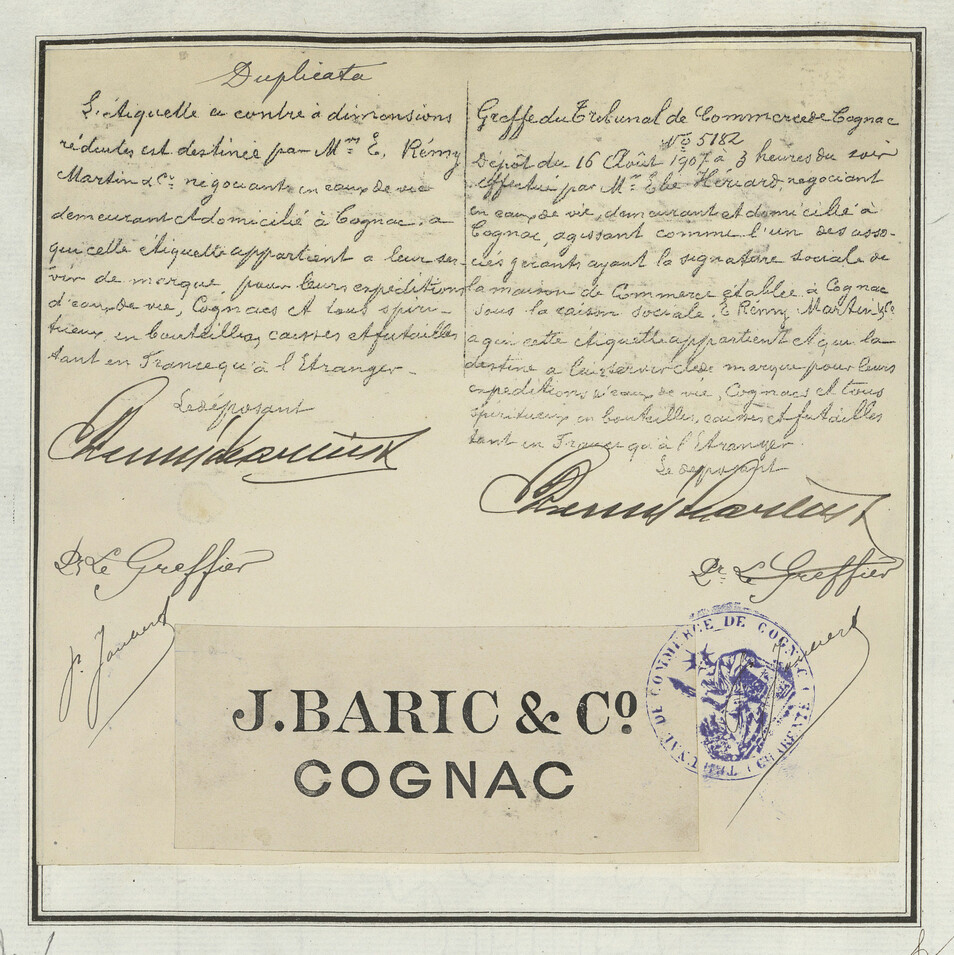 Duplicata
L'étiquette ci contre à dimensions
réduites est destinée par Mrs E. Rémy
Martin & Cie négociants en eaux de vie
demeurant et domicilié à Cognac, a
qui cette étiquette appartient a leur ser-
vir de marque, pour leurs expéditions
d'eaux de vie, Cognacs et tous spiri-
tueux, en bouteilles, caisses et futailles
tant en France qu'à l'Etranger.
Le déposant
Pr Le Greffier
Greffe du Tribunal de Commerce de Cognac
No 5182
Dépôt du 16 Août 1907 à 3 heures du soir
effectué par Mr Elie Hériard, négociant
en eaux de vie, demeurant et domicilié à
Cognac, agissant comme l'un des asso-
ciés gérants ayant la signature sociale de
la maison de Commerce établie à Cognac
sous la raison sociale, E Rémy Martin & Co
a qui cette étiquette appartient et qui la
destine a leur servir de marque pour leurs
expéditions d'eaux de vie, Cognacs et tous
spiritueux en bouteilles, caisses et futailles
tant en France qu'à l'Etranger.
Le déposant
Pr Le Greffier
J. BARIC & Co
COGNAC
TRIBUNAL DE COMMERCE DE COGNAC (CHARENTE)